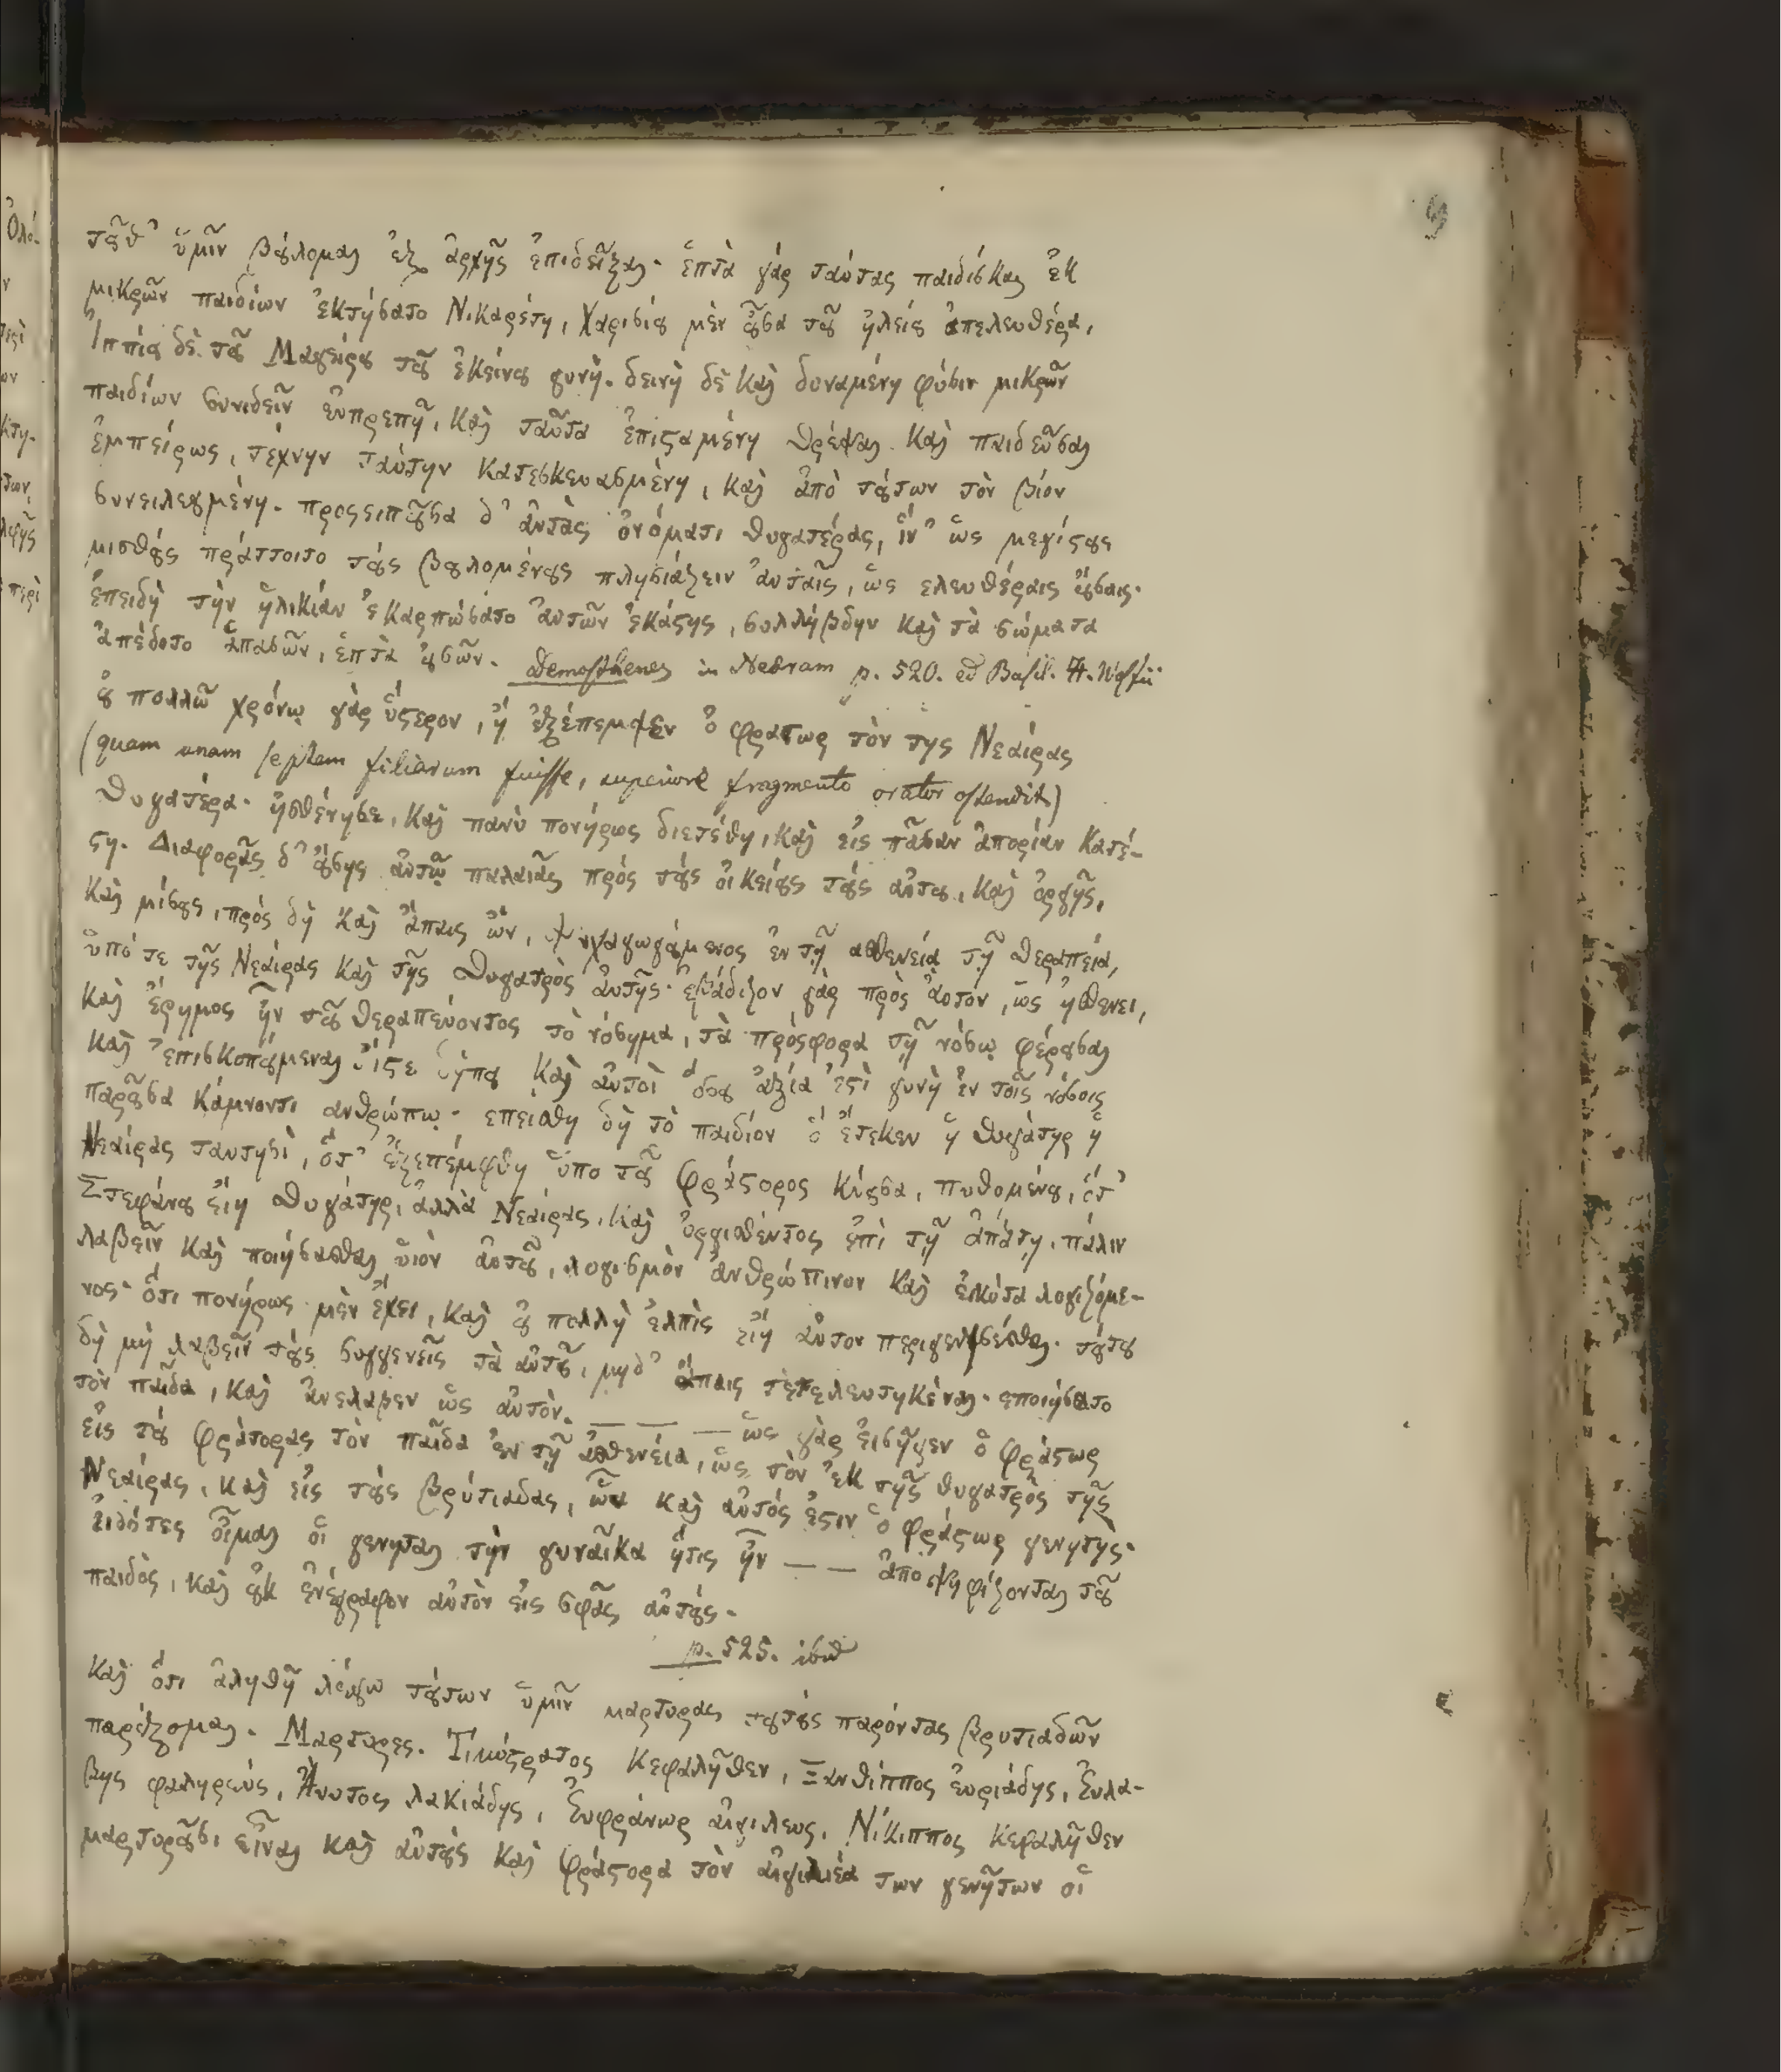 τοῦθ' ὑμῖν βούλομαι ἐξ ἀρχῆς ἐπιδεῖξαι· ἑπτὰ γάρ ταύτας παιδίσκας ἐκ
μικρῶν παιδίων ἐκτήσατο Νικαρέτη, Χαρισίου μὲν οὖσα τοῦ ἠλείου ἀπελευθέρα,
Ἱππίου δὲ τοῦ Μαγείρου τοῦ ἐκείνου γυνή. δεινὴ δὲ καὶ δυναμένη φύσιν μικρῶν
παιδίων συνιδεῖν εὐπρεπῆ, καὶ ταῦτα ἐπισταμένη θρέψαι καὶ παιδεῦσαι
ἐμπείρως, τέχνην ταύτην κατεσκευασμένη, καὶ ἀπὸ τούτων τὸν βίον
συνειλεγμένη. προσειποῦσα δ' αὐτὰς ὀνόματι θυγατέρας, ἵν' ὡς μεγίστους
μισθούς πράττοιτο τοὺς βουλομένους πλησιάζειν αὐταῖς, ὡς ελευθέραις οὔσαις·
ἐπειδὴ τὴν ἡλικίαν ἐκαρπώσατο αὐτῶν ἑκάστης, συλλήβδην καὶ τὰ σώματα
ἀπέδοτο ἁπασῶν, ἑπτὰ οὐσῶν. Demosthenes in Neæram p. 520. ed Basil. H. Wolfii
οὐ πολλῶ χρόνῳ γὰρ ὕστερον, ἢ ἐξέπεμψεν ὁ φραστωρ τὸν της Νεαίρας
(quam unam septem filiarum fuisse, superiore fragmento orator ostendit)
θυγατέρα· ἠσθένησε, καὶ πανὺ πονήρως διετέθη, καὶ εἰς πᾶσαν ἀπορίαν κατέ-
στη. Διαφορᾶς δ' οὔσης αὐτῷ παλαιᾶς πρός τοὺς οἰκείους τοὺς αὐτου, καὶ ὀργῆς,
καὶ μίσους, πρός δὴ καὶ ἄπαις ὤν, ψυχαγωγούμενος ἐν τῇ ασθενείᾳ τῇ θεραπείᾳ,
ὑπό τε τῆς Νεαίρας καὶ τῆς θυγατρὸς αὐτῆς· ἐβάδιζον γὰρ πρὸς ἀυτόν, ὡς ἠσθένει,
καὶ ἔρημος ἦν τοῦ θεραπεύοντος τὸ νόσημα, τὰ πρόσφορα τῇ νόσῳ φέρουσαι
καὶ ἐπισκοπούμεναι ἴστε δήπου καὶ αὐτοὶ ὅσου ἀξία ἐστὶ γυνὴ ἐν τοῖς νόσοις
παροῦσα κάμνοντι ανθρώπῳ· επείσθη δὴ τὸ παιδίον ὃ ἔτεκεν ἡ θυγάτηρ ἡ
Νεαίρας ταυτησὶ, ὅτ' ἐξεπέμφθη ὑπο τοῦ Φράστορος κύουσα, πυθομένου, ὅτ'
Στεφάνου εἴη θυγάτηρ, ἀλλὰ Νεαίρας, καὶ ὀργισθέντος ἐπὶ τῇ ἀπάτῃ, πάλιν
λαβεῖν καὶ ποιήσασθαι ὑιὸν αὐτοῦ, λογισμὸν ἀνθρώπινον καὶ ἐικότα λογιζόμε-
νος· ὅτι πονήρως μὲν ἔχει, καὶ οὐ πολλὴ ἐλπὶς εἴη αὐτον περιγενήσεσθαι. τούτου
δὴ μὴ λαβεῖν τοὺς συγγενεῖς τὰ αὐτοῦ, μηδ' ἄπαις τετελευτηκέναι. εποιήσατο
τὸν παῖδα, καὶ ἀνελαβεν ὡς αὐτόν. — — — ὡς γὰρ ἐισῆγεν ὁ Φράστωρ
εἰς τοὺ φράτορας τὸν παῖδα ἐν τῇ ἀσθενείᾳ, ὡς τὸν ἐκ τῆς θυγατρὸς τῆς
Νεαίρας, καὶ εἰς τοὺς βρύτιαδας, ὧν καὶ αὐτός ἐστιν ὁ Φράστωρ γενητὴς·
ἐιδότες οἶμαι οἱ γενηται τὴν γυναῖκα ἥτις ἦν — — ἀποψηφίζονται τοῦ
παιδὸς, καὶ οὐκ ἐνέγραφον αὐτὸν εἰς σφᾶς αὐτούς.
p. 525. ibid
Καὶ ὅτι ἀληθῆ λέγω τούτων ὑμῖν μαρτυρας τουτοὺς παρόντας βρυτιαδῶν
παρέξομαι. Μαρτυρες. Τιμόστρατος Κεφαλῆθεν, Ξανθίππος ἐυριάδης, Ἐυλα-
βης φαληρεύς, Ἄνυτος λακιάδης, Ἐυφράνωρ αἰγιλευς, Νίκιππος κεφαλῆθεν
μαρτυροῦσι εἶναι καὶ αὐτοὺς καὶ Φράστορα τὸν αἰγιλιέα των γενῆτων οἳ